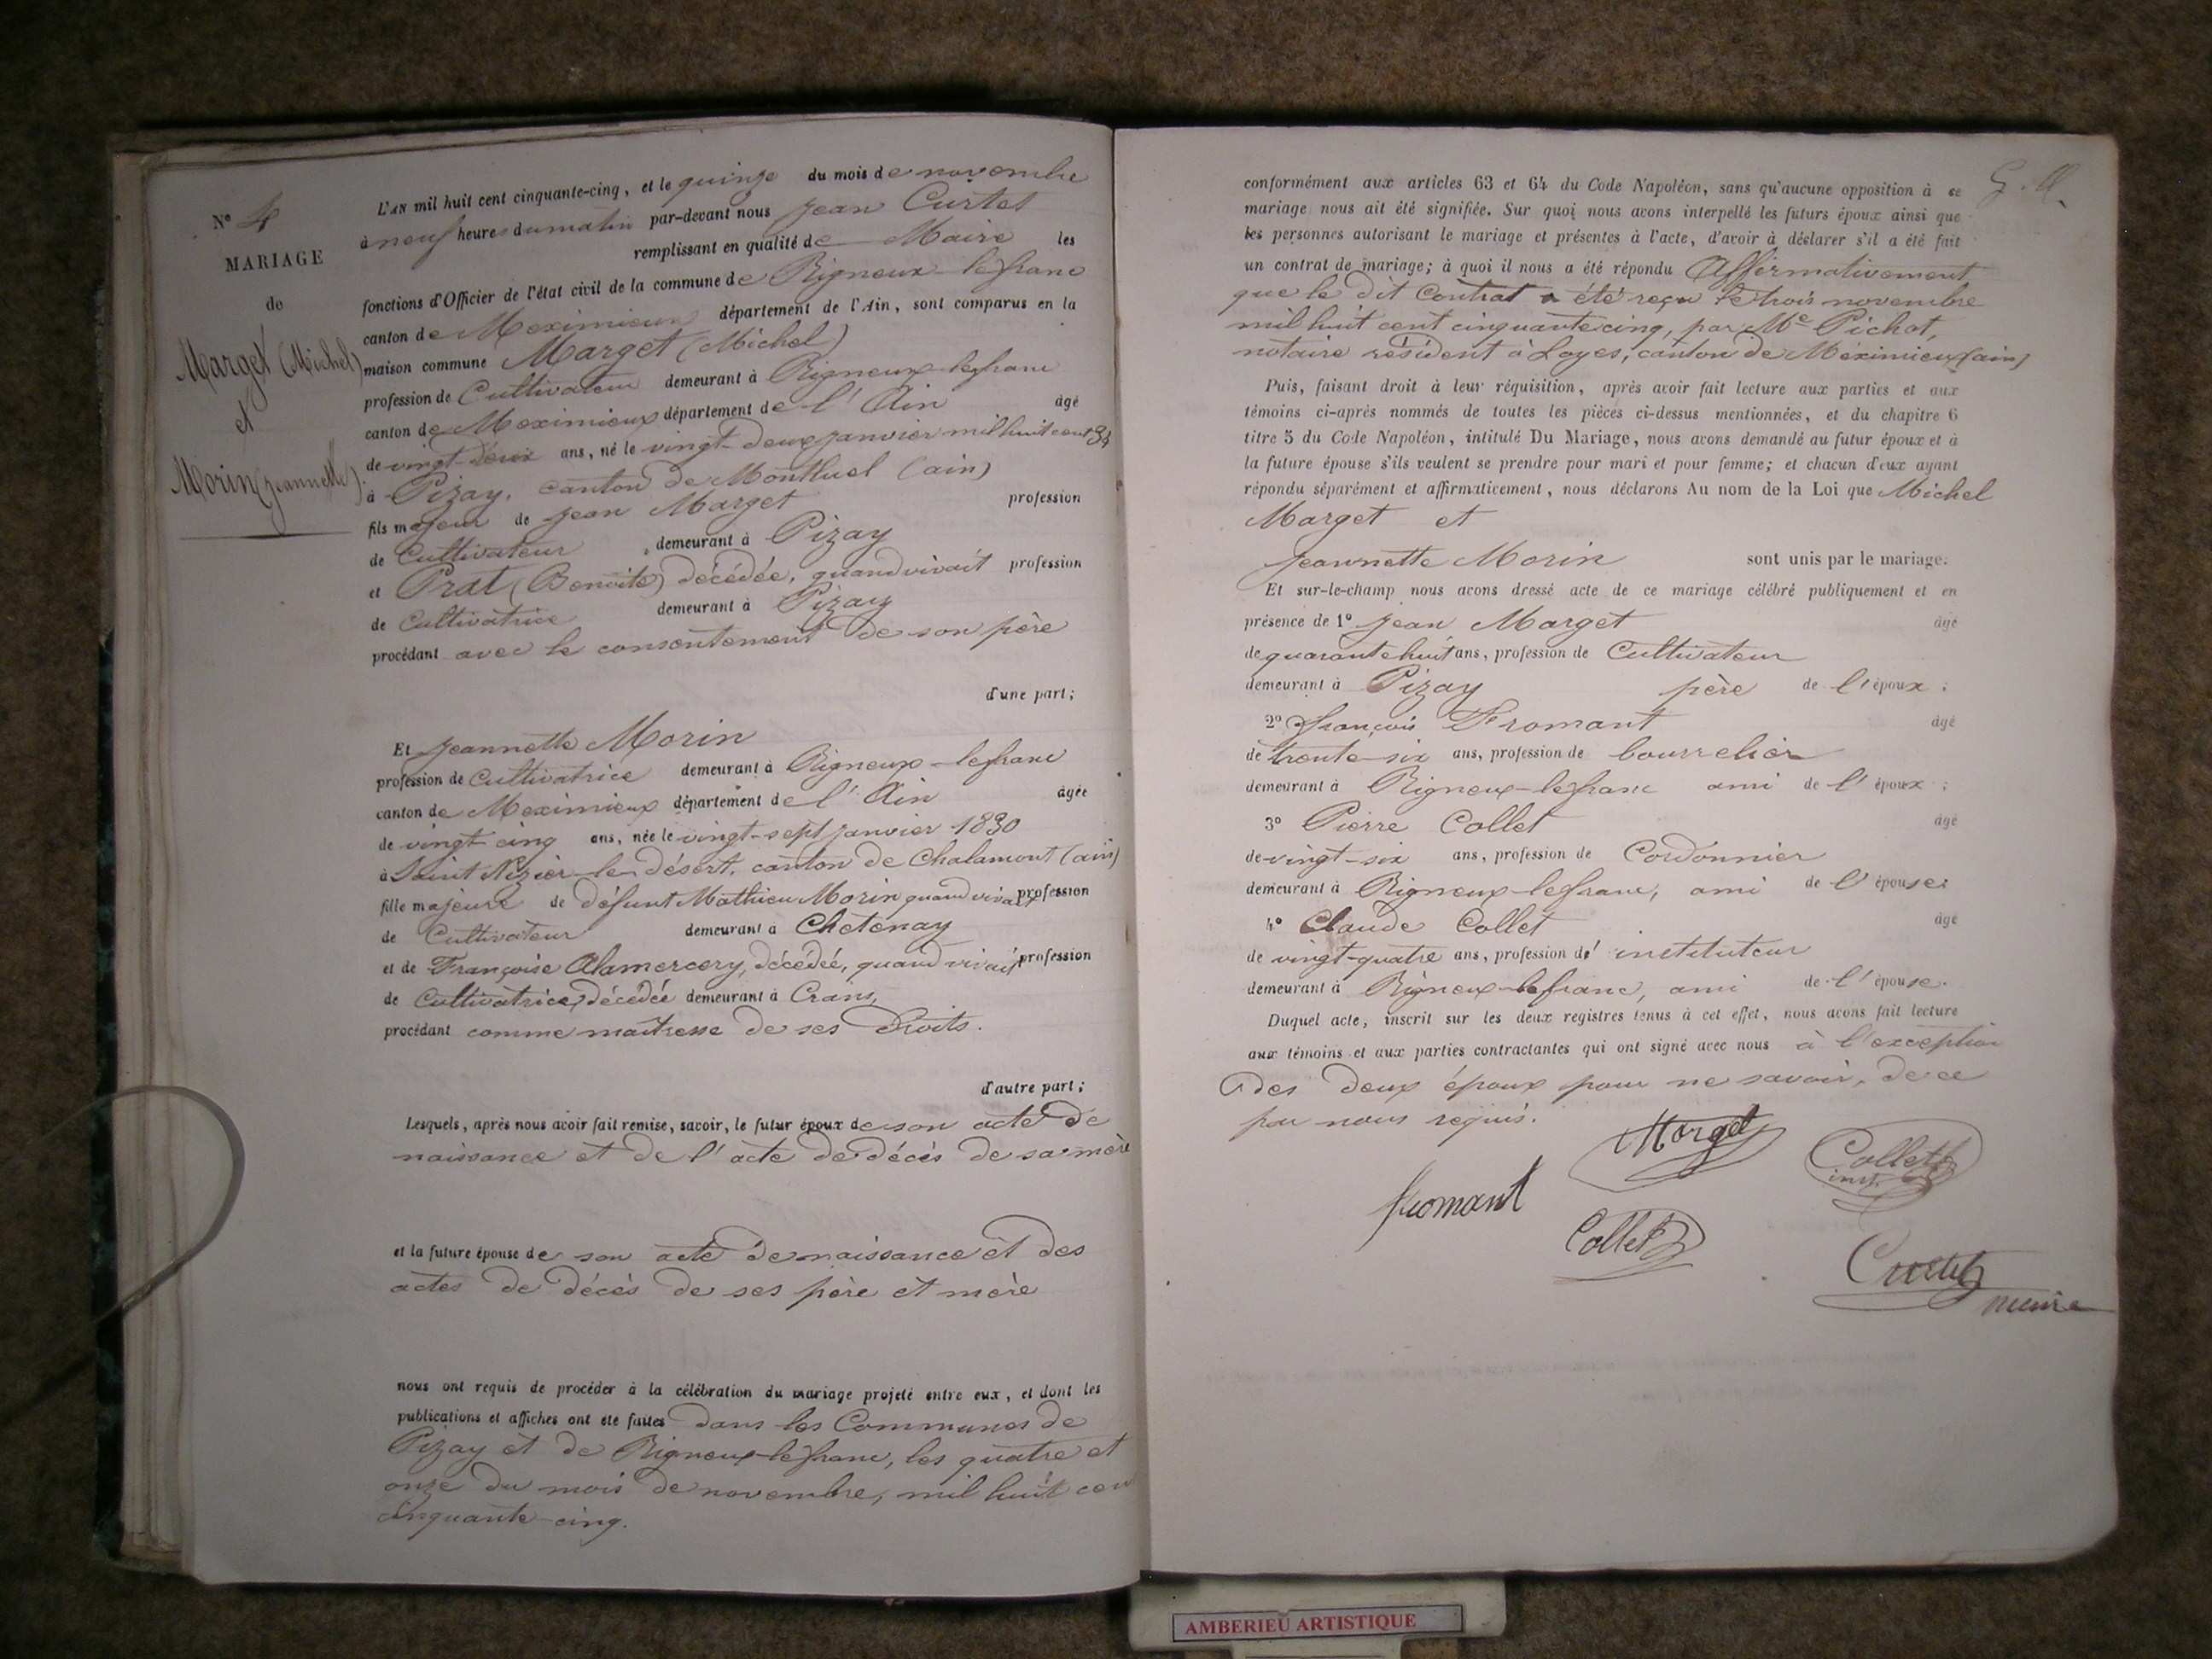 N° 4
MARIAGE
de
Marget (Michel)
et
Morin (Jeannette)
L'AN mil huit cent cinquante-cinq, et le quinze du mois de novembre
à neuf heures du matin par-devant nous Jean Curtet
remplissant en qualité de Maire les
fonctions d'Officier de l'état civil de la commune de Rigneux-lefranc
canton de Meximieux département de l'Ain, sont comparus en la
maison commune Marget (Michel)
profession de Cultivateur demeurant à Rigneux-lefranc
canton de Meximieux département de l'Ain âgé
de vingt-deux ans, né le vingt-deux janvier mil huit cent
à Pizay, canton de Montluel (ain)
fils majeur de Jean Marget profession
de Cultivateur demeurant à Pizay
et Prat (Benoite) décédée, quand vivait profession
de Cultivatrice demeurant à Pizay
procédant avec le consentement de son père
d'une part;
Et Jeannette Morin
profession de Cultivatrice demeurant à Rigneux-lefranc
canton de Meximieux département de l'Ain âgée
de vingt cinq ans, née le vingt-sept janvier 1830
à Saint Nizier-le-désert, canton de Chalamont (ain)
fille majeure de défunt Mathieu Morin quand vivait profession
de Cultivateur demeurant à Chatenay
et de Françoise Alamercery, décédée, quand vivait profession
de Cultivatrice, décédée demeurant à Crans,
procédant comme maîtresse de ses droits.
d'autre part;
Lesquels, après nous avoir fait remise, savoir, le futur époux de son acte de
naissance et de l'acte de décès de sa mère
et la future épouse de son acte de naissance et des
actes de décès de ses père et mère
nous ont requis de procéder à la célébration du mariage projeté entre eux, et dont les
publications et affiches ont été faites dans les Communes de
Pizay et de Rigneux-lefranc, les quatre et
onze du mois de novembre, mil huit cent
cinquante-cinq.
conformément aux articles 63 et 64 du Code Napoléon, sans qu'aucune opposition à ce
mariage nous ait été signifiée. Sur quoi nous avons interpellé les futurs époux ainsi que
les personnes autorisant le mariage et présentes à l'acte, d'avoir à déclarer s'il a été fait
un contrat de mariage; à quoi il nous a été répondu Affirmativement
que le dit Contrat a été reçu le trois novembre
mil huit cent cinquante cinq, par Me Pichat,
notaire résident à Loyes, canton de Méximieux (ain)
Puis, faisant droit à leur réquisition, après avoir fait lecture aux parties et aux
témoins ci-après nommés de toutes les pièces ci-dessus mentionnées, et du chapitre 6
titre 5 du Code Napoléon, intitulé Du Mariage, nous avons demandé au futur époux et à
la future épouse s'ils veulent se prendre pour mari et pour femme; et chacun d'eux ayant
répondu séparément et affirmativement, nous déclarons Au nom de la Loi que Michel
Marget et
Jeannette Morin sont unis par le mariage.
Et sur-le-champ nous avons dressé acte de ce mariage célébré publiquement et en
présence de 1° Jean Marget âgé
de quarante huit ans, profession de Cultivateur
demeurant à Pizay père de l'époux;
2° françois Fromant âgé
de trente-six ans, profession de bourrelier
demeurant à Rigneux-lefranc ami de l'époux;
3° Pierre Collet âgé
de vingt-six ans, profession de Cordonnier
demeurant à Rigneux-lefranc, ami de l'épouse
4° Claude Collet âgé
de vingt-quatre ans, profession d' instituteur
demeurant à Rigneux-lefranc, ami de l'épouse.
Duquel acte, inscrit sur les deux registres tenus à cet effet, nous avons fait lecture
aux témoins et aux parties contractantes qui ont signé avec nous à l'exception
des deux époux pour ne savoir, de ce
par nous requis.
Marget
Collet
inst.
fromant
Collet
Curtet
maire
AMBERIEU ARTISTIQUE